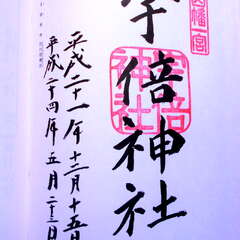 幡一宮
宇倍神社
宇倍
神社
平成二十一年十二月十五日
平成二十四年五月二十三日